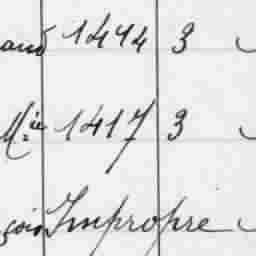 and 1494 3
Mie 1417 3
çois Impropre